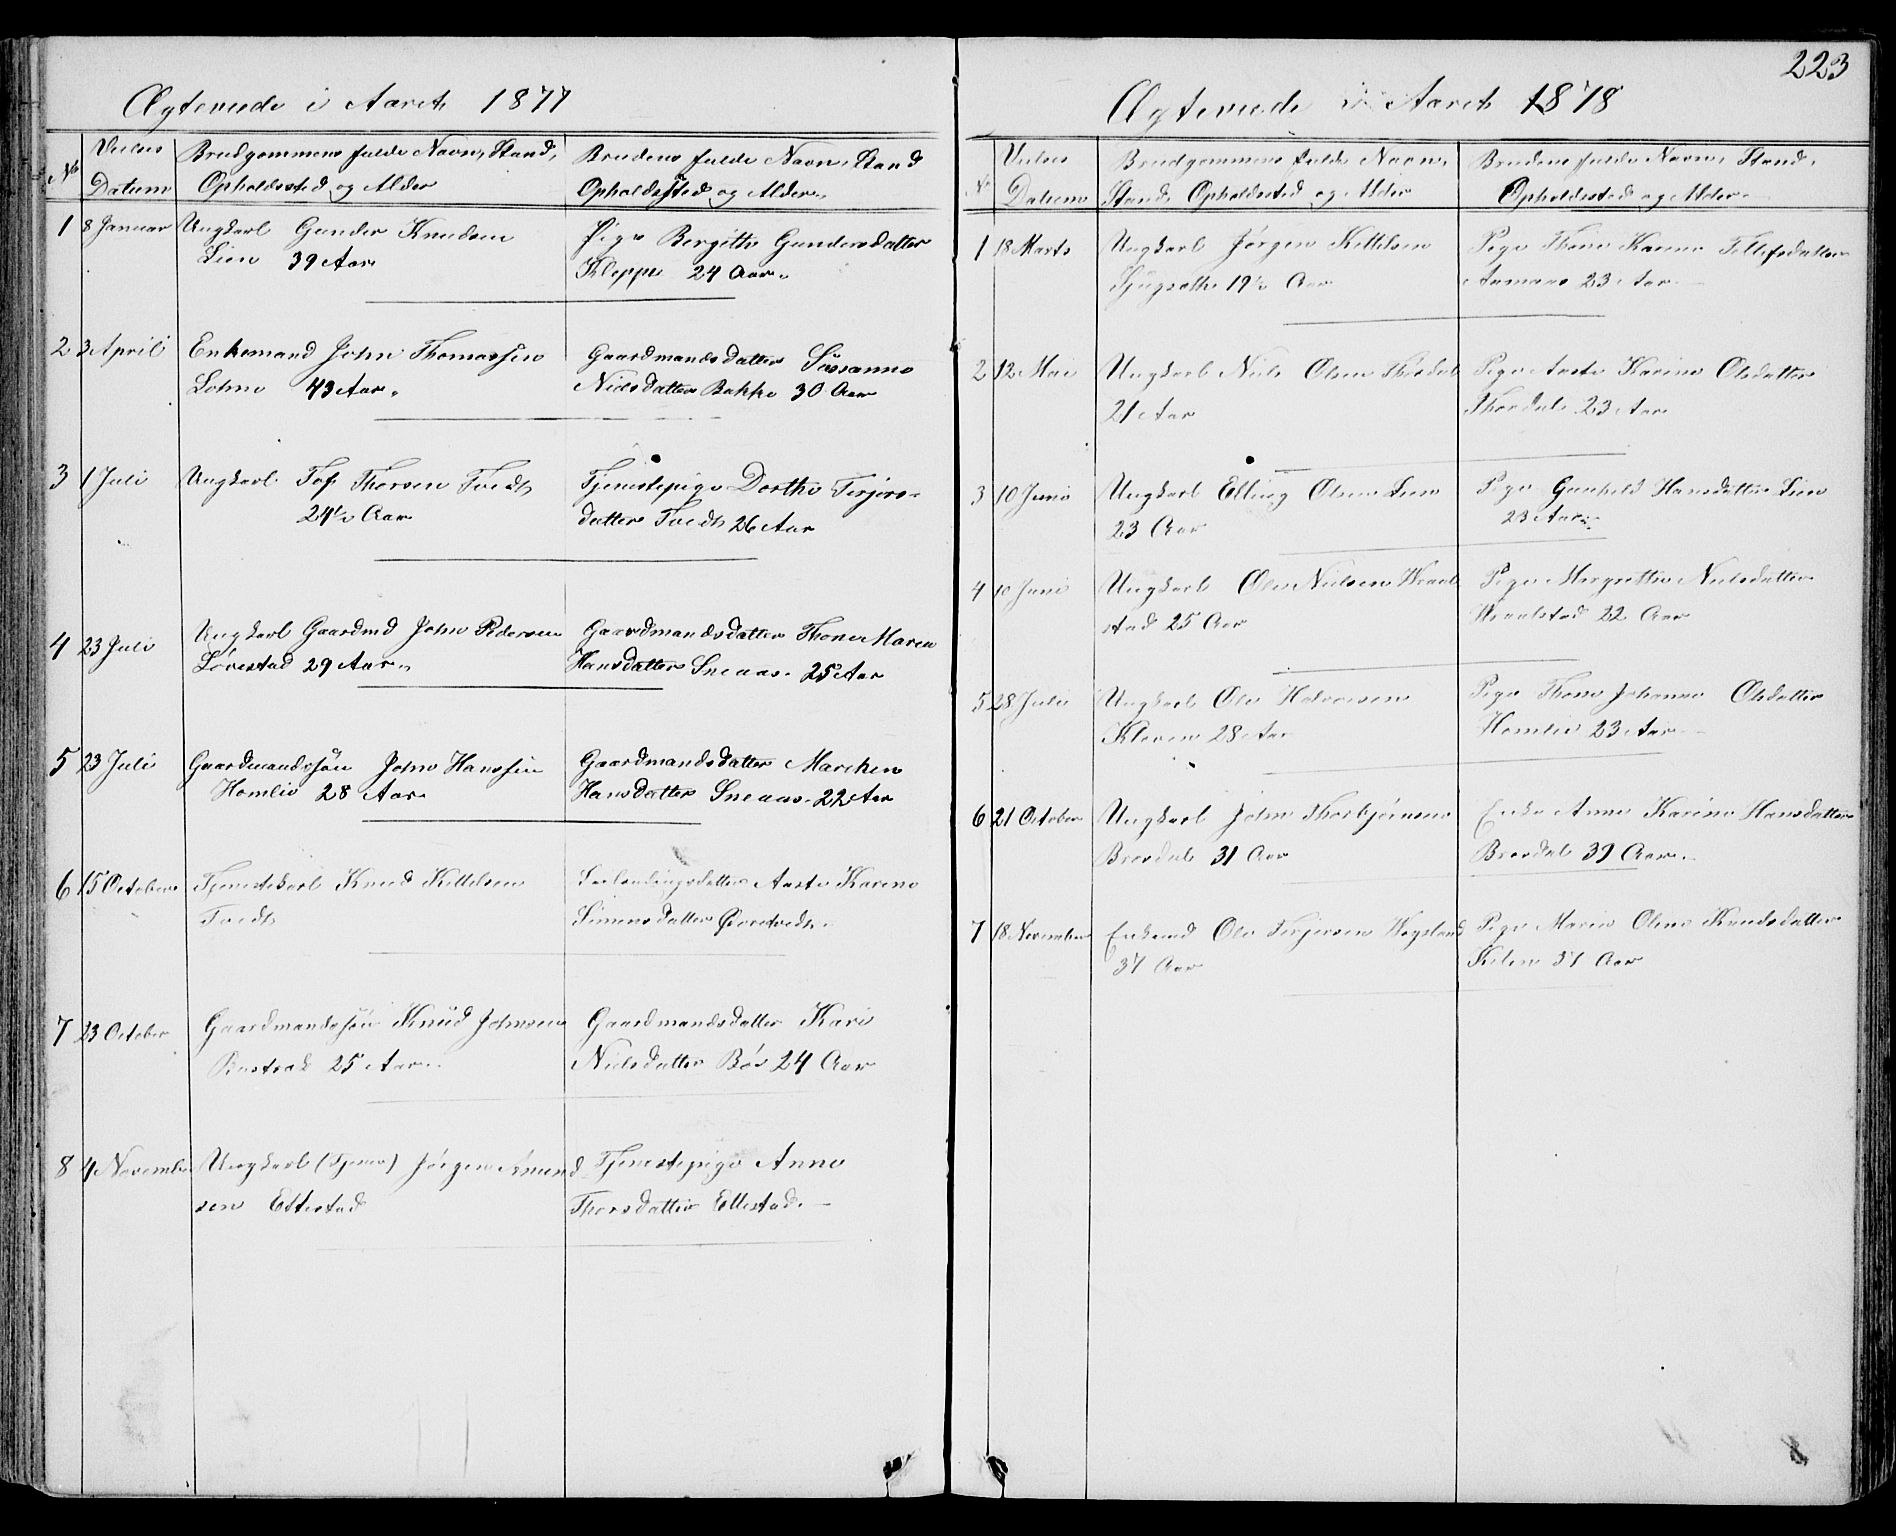 Ægteviede i Aaret 1877
No
Vielses
Datum
Brudgommens fulde Navn, Stand,
Opholdssted og Alder
Brudens fulde Navn, Stand
Opholdssted og Alder
1 8 Januar Ungkarl Gunder Knudsen
Lien 39 Aar
Pige Bergitte Gundersdatter
Kleppe 24 Aar.
2 3 April Enkemand John Thomassen
Lohne 43 Aar.
Gaardmandsdatter Sussanne
Nielsdatter Bakke 30 Aar
3 1 Juli Ungkarl Tof Thorsen Tvedt
24½ Aar
Tjenestepige Dorthe Terjers-
datter Tvedt 26 Aar
4 23 Juli Ungkarl Gaardmd John Pedersen
Lövestad 29 Aar.
Gaardmandsdatter Thone Maren
Hansdatter Sneaas. 25 Aar
5 23 Juli Gaardmandssøn John Hanssen
Homlie 28 Aar.
Gaardmandsdatter Marchen
Hansdatter Sneaas. 22 Aar
6 15 October Tjenestekarl Knud Kittelsen
Tvedt
Aaste Karine
Simensdatter
7 23 October Gaardmandssøn Knud Johnsen
25 Aar.
Gaardmandsdatter Kari
Nielsdatter Böe 24 Aar
8 4 November Ungkarl (Tjener) Jörgen Amund
sen Ettestad
Tjenestepige Anne
Thorsdatter Ettestad.
223
Ægteviede i Aaret 1878
No
Vielses
Datum
Brudgommens fulde Navn,
Stand, Opholdssted og Alder
Brudens fulde Navn, Stand,
Opholdssted og Alder.
1 18 Marts Ungkarl Jörgen Kittilsen
19½ Aar
Pige Thone Karine Tellefsdatter
23 Aar.
2 12 Mai Ungkarl Niels Olsen Thordal
21 Aar
Pige Aaste Karine Olsdatter
Thordal 23 Aar
3 10 Juni Ungkarl Elling Olsen Lien
23 Aar
Pige Gunhild Hansdatter Lien
23 Aar.
4 10 Juni Ungkarl Ole Nielsen Wraal
stad 25 Aar
Pige Mergrethe Nielsdatter
Wraalstad 22 Aar
5 28 Juli Ungkarl Ole Halvorsen
Kleven 28 Aar
Pige Thone Johanne Olsdatter
Homlie 23 Aar.
6 21 October Ungkarl John Thorbjörnsen
Brendal 31 Aar
Enke Anne Karine Hansdatter
Brendal 39 Aar.
7 18 November Enkemd Ole Terjersen Wegsland
37 Aar
Pige Maren Oline Knudsdatter
Kilen 37 Aar